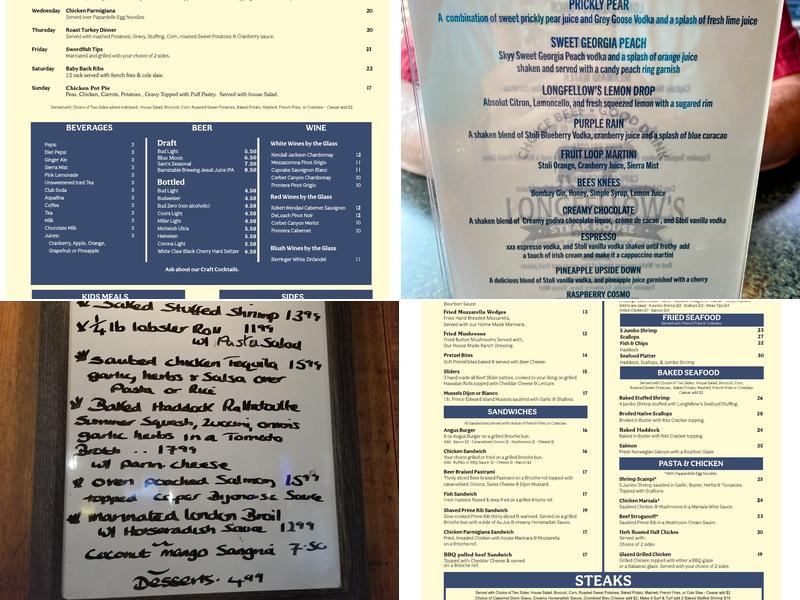 Wednesday Chicken Parmigiana 20
Served over Papardelle Egg Noodles.
Thursday Roast Turkey Dinner 20
Served with mashed Potatoes, Gravy, Stuffing, Corn, roasted Sweet Potatoes & Cranberry sauce.
Friday Swordfish Tips 21
Marinated and grilled with your choice of 2 sides.
Saturday Baby Back Ribs 22
1/2 rack served with french fries & cole slaw.
Sunday Chicken Pot Pie 17
Peas, Chicken, Carrots, Potatoes , Gravy Topped with Puff Pastry. Served with house salad.
Served with Choice of Two Sides where indicated: House Salad, Broccoli, Corn, Roasted Sweet Potatoes, Baked Potato, Mashed, French Fries, or Coleslaw - Caesar add $2
BEVERAGES
Pepsi 3
Diet Pepsi 3
Ginger Ale 3
Sierra Mist 3
Pink Lemonade 3
Unsweetened Iced Tea 3
Club Soda 3
Aquafina 3
Coffee 3
Tea 3
Milk 3
Chocolate Milk 3
Juices: 3
Cranberry, Apple, Orange,
Grapefruit or Pineapple
BEER
Draft
Bud Light 5.50
Blue Moon 6.50
Sam's Seasonal 7.50
Barnstable Brewing Jesuit Juice IPA 8.50
Bottled
Bud Light 4.50
Budweiser 4.50
Bud Zero (non alcoholic) 4.50
Coors Light 4.50
Miller Light 4.50
Michelob Ultra 5.50
Heineken 5.50
Corona Light 5.50
White Claw Black Cherry Hard Seltzer 6.50
Ask about our Craft Cocktails.
WINE
White Wines by the Glass
Kendall Jackson Chardonnay 12
Mezzacorona Pinot Grigio 11
Cupcake Sauvignon Blanc 11
Corbet Canyon Chardonnay 10
Frontera Pinot Grigio 10
Red Wines by the Glass
Robert Mondavi Cabernet Sauvignon 12
DeLoach Pinot Noir 12
Corbet Canyon Merlot 10
Frontera Cabernet 10
Blush Wines by the Glass
Berringer White Zinfandel 11
KIDS MEALS
SIDES
PRICKLY PEAR
A combination of sweet prickly pear juice and Grey Goose Vodka and a splash of fresh lime juice
SWEET GEORGIA PEACH
Skyy Sweet Georgia Peach vodka and a splash of orange juice
shaken and served with a candy peach ring garnish
LONGFELLOW'S LEMON DROP
Absolut Citron, Lemoncello, and fresh squeezed lemon with a sugared rim
PURPLE RAIN
A shaken blend of Stoli Blueberry Vodka, cranberry juice and a splash of blue curacao
FRUIT LOOP MARTINI
Stoli Orange, Cranberry Juice, Sierra Mist
BEES KNEES
Bombay Gin, Honey, Simple Syrup, Lemon Juice
CREAMY CHOCOLATE
A shaken blend of Creamy godiva chocolate liquor, crème de cacao , and Stoli vanilla vodka
ESPRESSO
xxx espresso vodka, and Stoli vanilla vodka shaken until frothy add
a touch of irish cream and make it a cappucino martini
PINEAPPLE UPSIDE DOWN
A delicious blend of Stoli vanilla vodka, and pineapple juice garnished with a cherry
RASPBERRY COSMO
Baked Stuffed Shrimp 13.99
1/4 lb lobster Roll 11.99
w/ Pasta Salad
Sauteed chicken Tequila 15.99
garlic, herbs & Salsa over
Pasta or Rice
Baked Haddock Rattatoulle
Summer Squash, Zuccini, onions
garlic herbs in a Tomato
Broth.. 17.99
w/ parm. cheese
oven poached Salmon 15.99
topped caper Byonaise Sauce
marinated london Broil
w/ Horseradish Sauce 12.99
Coconut mango Sangria 7.50
Desserts. 4.99
Bourbon Sauce.
Fried Mozzarella Wedges 13
Fried Hand Breaded Mozzarella,
Served with our Home Made Marinara.
Fried Mushrooms 12
Fried Button Mushrooms Served with,
Our House Made Ranch Dressing.
Pretzel Bites 14
Soft Pretzel bites baked & served with Beer Cheese.
Sliders 15
3 hand made all Beef Slider patties, cooked to your liking on grilled
Hawaiian Rolls topped with Cheddar Cheese & Lettuce.
Mussels Dijon or Bianco 17
1 lb. Prince Edward Island Mussels sautéed with Garlic & Shallots.
SANDWICHES
All Sandwiches served with choice of French Fries or Coleslaw.
Angus Burger 16
8 oz Angus Burger on a grilled Brioche bun.
Add: Bacon $2 - Caramelized Onions $1 - Mushrooms $1 - Cheese $1
Chicken Sandwich 16
Your choice grilled or fried on a grilled Brioche bun.
Add: Buffalo or BBQ Sauce $1 - Cheese $1 - Bacon $2
Beer Braised Pastrami 17
Thinly sliced Beer braised Pastrami on a Brioche topped with
caramelized Onions, Swiss Cheese & Dijon Mustard.
Fish Sandwich 17
Fresh Haddock floured & deep fried on a grilled Brioche roll.
Shaved Prime Rib Sandwich 19
Slow cooked Prime Rib thinly sliced & warmed. Served on a grilled
Brioche bun with a side of Au Jus & creamy Horseradish Sauce.
Chicken Parmigiana Sandwich 17
Fried, breaded Chicken with house Marinara & Mozzarella
on a Brioche roll.
BBQ pulled beef Sandwich 17
Topped with Cheddar Cheese & served
on a Brioche roll.
FRIED SEAFOOD
Served with French Fries & Coleslaw.
5 Jumbo Shrimp 23
Scallops 27
Fish & Chips 22
Haddock
Seafood Platter 30
Haddock, Scallops, & Jumbo Shrimp
BAKED SEAFOOD
Served with Choice of Two Sides: House Salad, Broccoli, Corn,
Roasted Sweet Potatoes, Baked Potato, Mashed, French Fries or Coleslaw -
Caesar add $2
Baked Stuffed Shrimp 26
4 jumbo Shrimp stuffed with Longfellow's Seafood Stuffing.
Broiled Native Scallops 28
Broiled in Butter with Ritz Cracker topping.
Baked Haddock 24
Baked in Butter with Ritz Cracker topping.
Salmon 25
Fresh Norwegian Salmon with a Bourbon Glaze.
PASTA & CHICKEN
*With Pappardelle Egg Noodles.
Shrimp Scampi* 25
5 Jumbo Shrimp sautéed in Garlic, Butter, Herbs & Tomatoes.
Topped with Scallions.
Chicken Marsala* 24
Sautéed Chicken & Mushrooms in a Marsala Wine Sauce.
Beef Stroganoff* 23
Sautéed Prime Rib in a Mushroom Cream Sauce.
Herb Roasted Half Chicken 20
Served with:
Choice of 2 sides
Glazed Grilled Chicken 19
Grilled Chicken topped with either a BBQ glaze
or a Balsamic glaze. Served with your choice of 2 sides
STEAKS
Served with Choice of Two Sides: House Salad, Broccoli, Corn, Roasted Sweet Potatoes, Baked Potato, Mashed, French Fries, or Cole Slaw - Caesar add $2